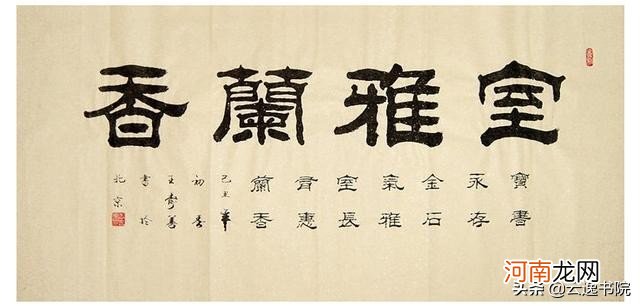 室雅蘭香
寶書
永存
金石
氣雅
室長
有惠
蘭香
己丑年
初春
王
書於
北京
河南龙网
头条 @云逸书院